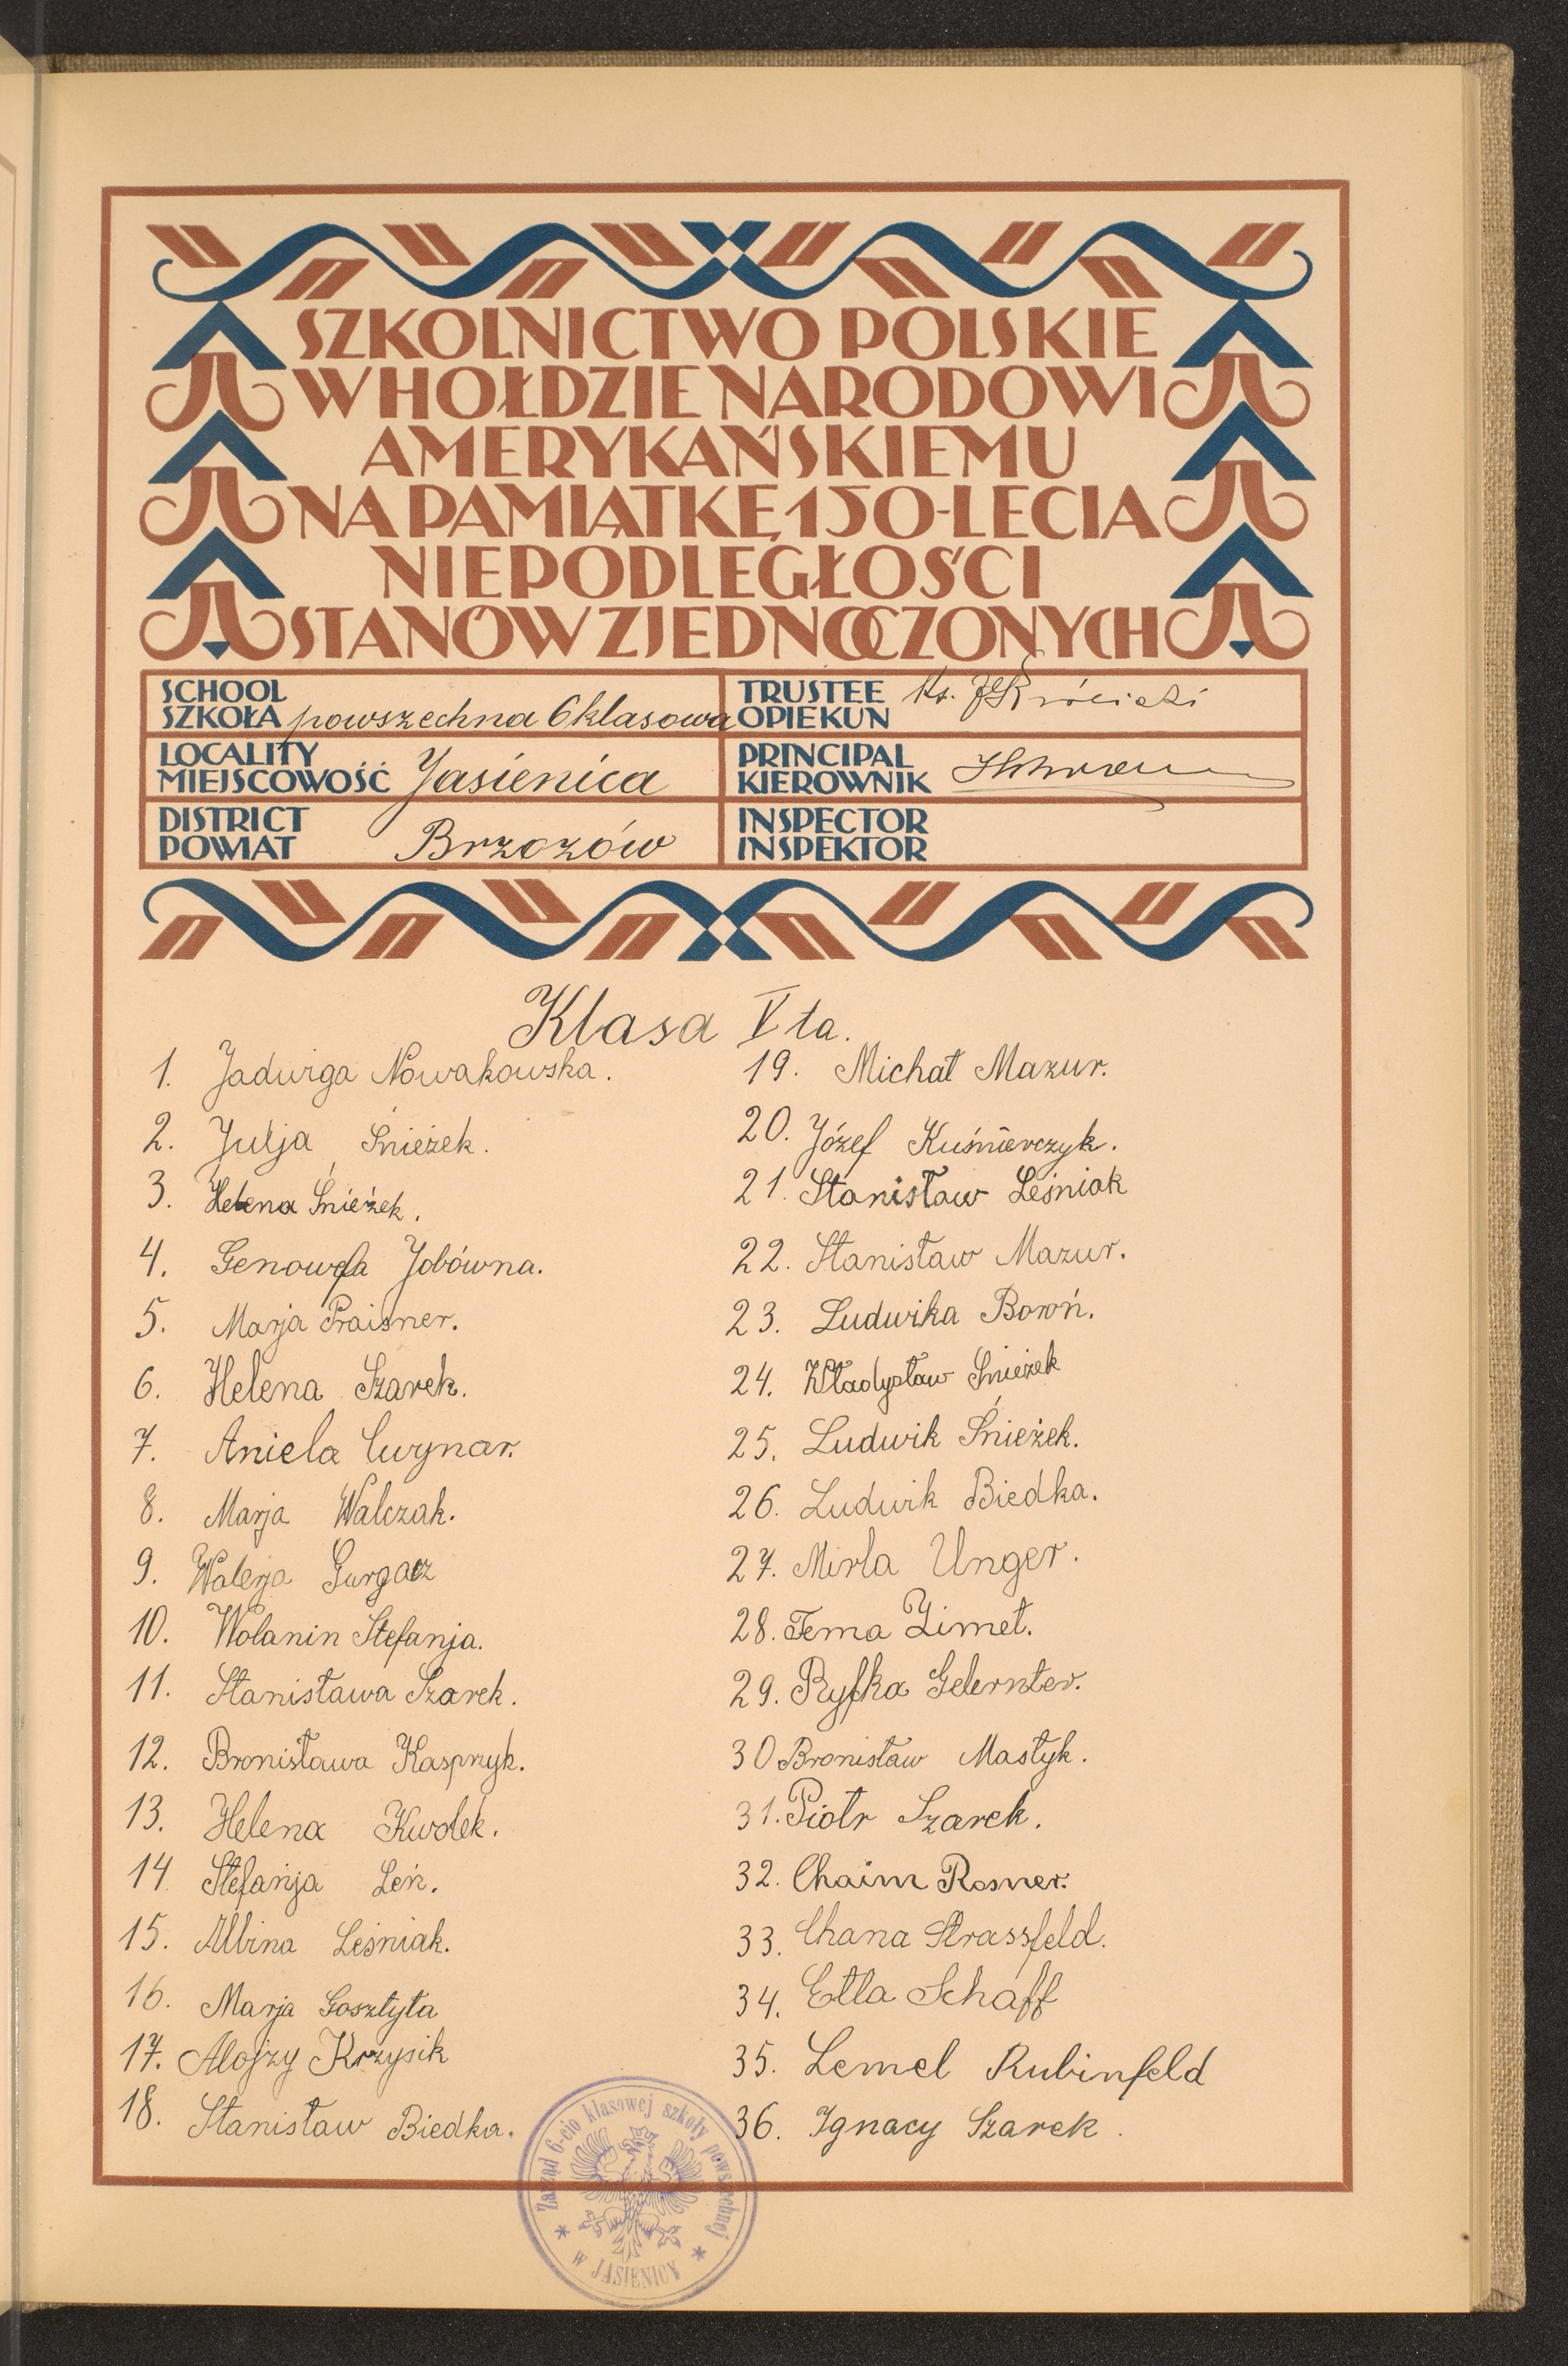 SZKOLNICTWO POLSKIE
W HOŁDZIE NARODOWI
AMERYKAŃSKIEMU
NA PAMIĄTKĘ 150-LECIA
NIEPODLEGŁOŚCI
STANÓW ZJEDNOCZONYCH
SCHOOL
SZKOŁA powszechna 6 klasowa
TRUSTEE
OPIEKUN Ks.
LOCALITY
MIEJSCOWOŚĆ Jasienica
PRINCIPAL
KIEROWNIK
DISTRICT
POWIAT Brzozów
INSPECTOR
INSPEKTOR
Klasa V ta.
1. Jadwiga Nowakowska.
2. Julja Śnieżek.
3. Helena Śnieżek.
4. Genowefa Jobówna.
5. Marja Praisner.
6. Helena Szarek.
7. Aniela Cwynar.
8. Marja Walczak.
9. Walerja Gurgacz
10. Wolanin Stefanja.
11. Stanisława Szarek.
12. Bronisława Kasprzyk.
13. Helena Kwolek.
14. Stefanja Leń.
15. Albina Leśniak.
16. Marja Gosztyła
17. Alojzy Krzysik
18. Stanisław Biedka.
19. Michał Mazur.
20. Józef Kuśnierczyk.
21. Stanisław Leśniak
22. Stanisław Mazur.
23. Ludwika Boroń.
24. Władysław Śnieżek
25. Ludwik Śnieżek.
26. Ludwik Biedka.
27. Mirla Unger.
28. Tema Zimet.
29. Ryfka Gelernter.
30 Bronisław Mastyk.
31. Piotr Szarek.
32. Chaim Rosner.
33. Chana Strassfeld.
34. Etla Schaff
35. Lemel Rubinfeld
36. Ignacy Szarek.
Zarząd 6-cio klasowej szkoły powszechnej
* W JASIENICY *